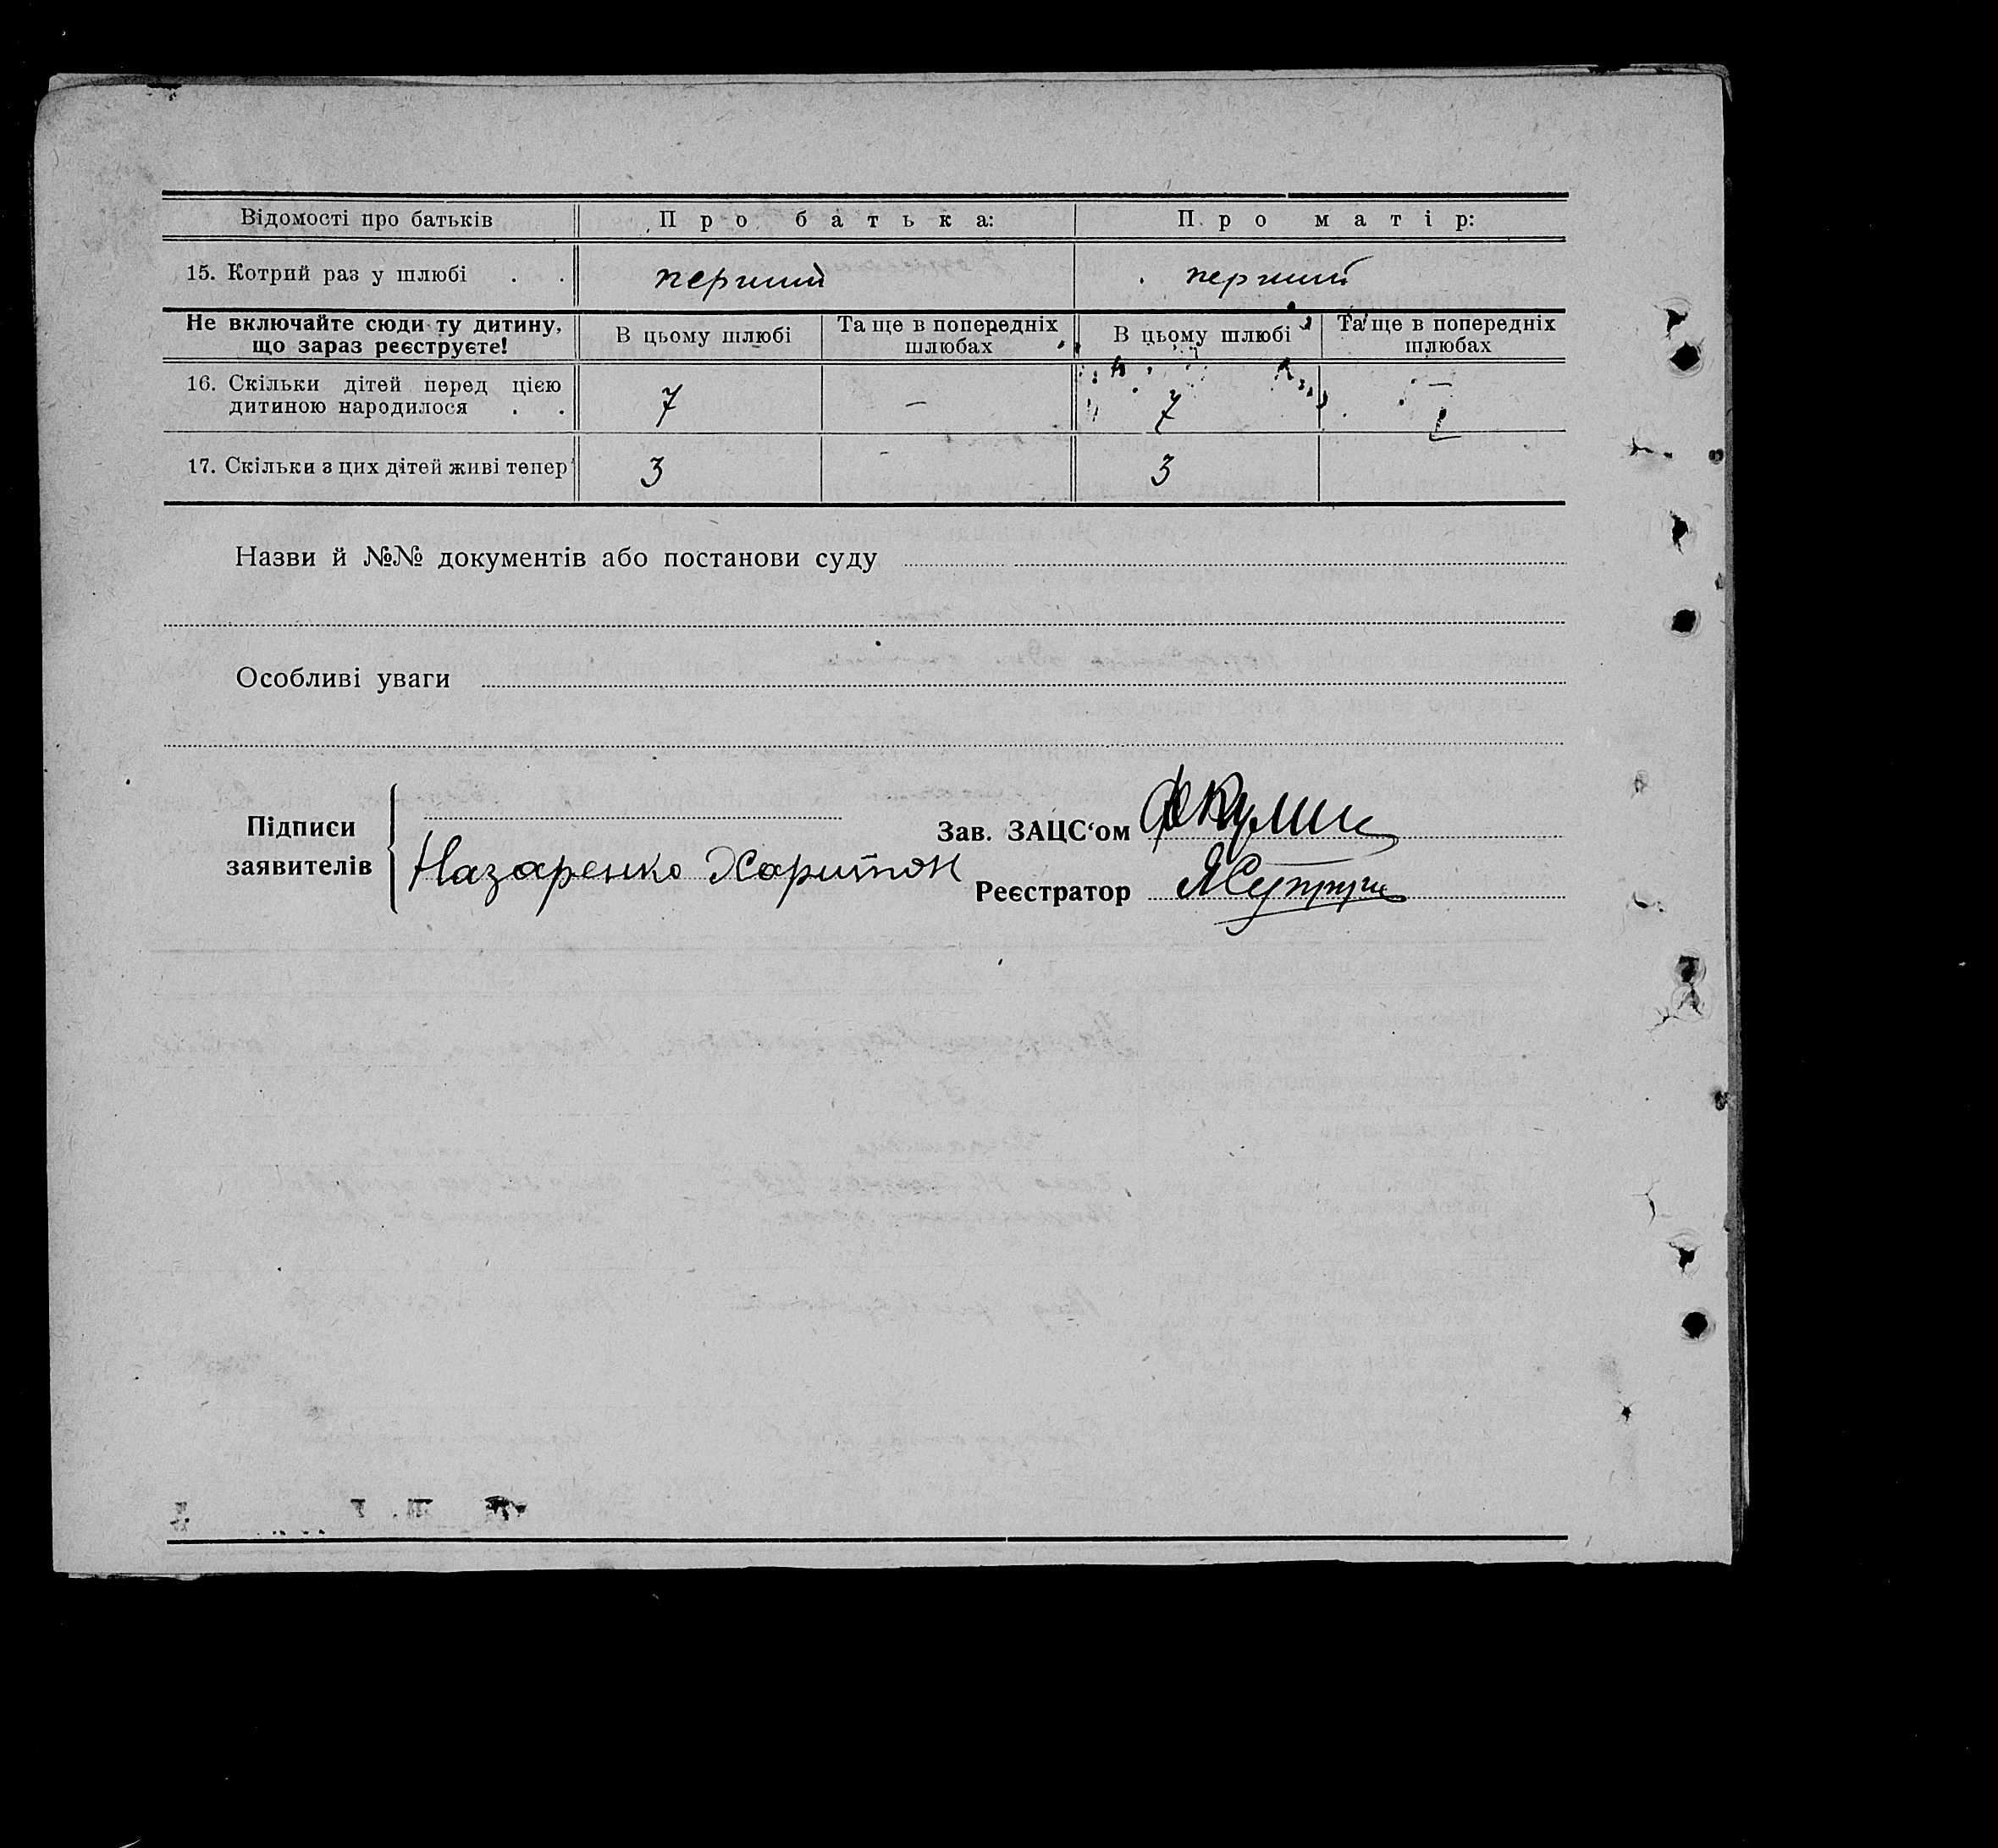 Відомості про батьків Про батька: Про матір:
15. Котрий раз у шлюбі . . перший перший
Не включайте сюди ту дитину, що зараз реєструєте! В цьому шлюбі Та ще в попередніх шлюбах В цьому шлюбі Та ще в попередніх шлюбах
16. Скільки дітей перед цією
дитиною народилося . . 7 — 7 —
17. Скільки з цих дітей живі тепер 3 - 3
Назви й №№ документів або постанови суду
Особливі уваги
Підписи заявителів
Назаренко Харитон
Зав. ЗАЦС‘ом
Реєстратор